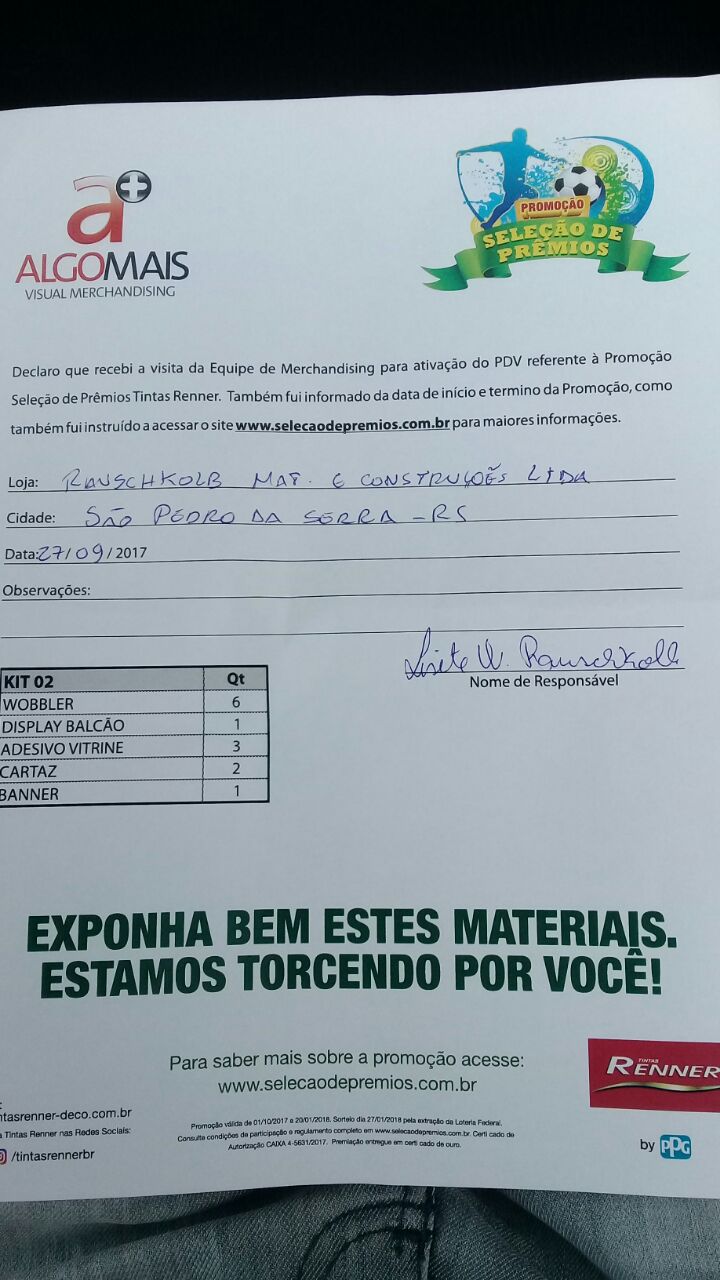 a+
ALGOMAIS
VISUAL MERCHANDISING
PROMOÇÃO
SELEÇÃO DE
PRÊMIOS
Declaro que recebi a visita da Equipe de Merchandising para ativação do PDV referente à Promoção
Seleção de Prêmios Tintas Renner. Também fui informado da data de início e termino da Promoção, como
também fui instruído a acessar o site www.selecaodepremios.com.br para maiores informações.
Loja: RAUSCHKOLB MAT. E CONSTRUÇÕES LTDA
Cidade: SÃO PEDRO DA SERRA - RS
Data: 27/09/2017
Observações:
Lisete W. Rauschkolb
Nome de Responsável
KIT 02 Qt
WOBBLER 6
DISPLAY BALCÃO 1
ADESIVO VITRINE 3
CARTAZ 2
BANNER 1
EXPONHA BEM ESTES MATERIAIS.
ESTAMOS TORCENDO POR VOCÊ!
Para saber mais sobre a promoção acesse:
www.selecaodepremios.com.br
TINTAS
RENNER
by PPG
ntasrenner-deco.com.br
a Tintas Renner nas Redes Sociais:
/tintasrennerbr
Promoção válida de 01/10/2017 a 20/01/2018. Sorteio dia 27/01/2018 pela extração da Loteria Federal.
Consulte condições de participação e regulamento completo em www.selecaodepremios.com.br. Certi cado de
Autorização CAIXA 4-5631/2017. Premiação entregue em certi cado de ouro.